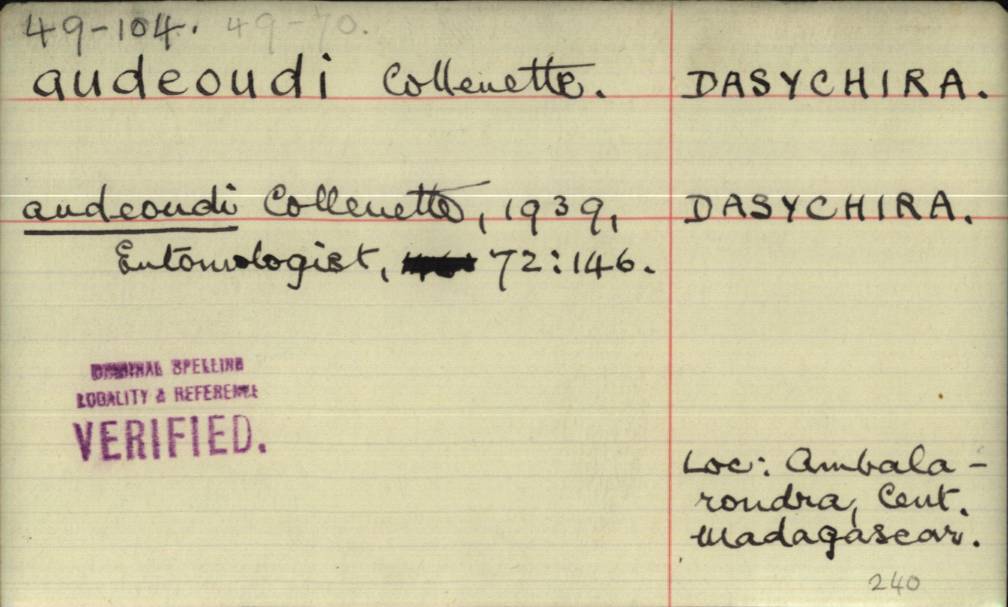 49-104. 49-70.
audeoudi Collenette. DASYCHIRA.
audeoudi Collenette, 1939, DASYCHIRA.
Entomologist, 72:146.
ORIGINAL SPELLING
LOCALITY & REFERENCE
VERIFIED.
Loc: Ambala-
rondra, Cent.
Madagascar.
240